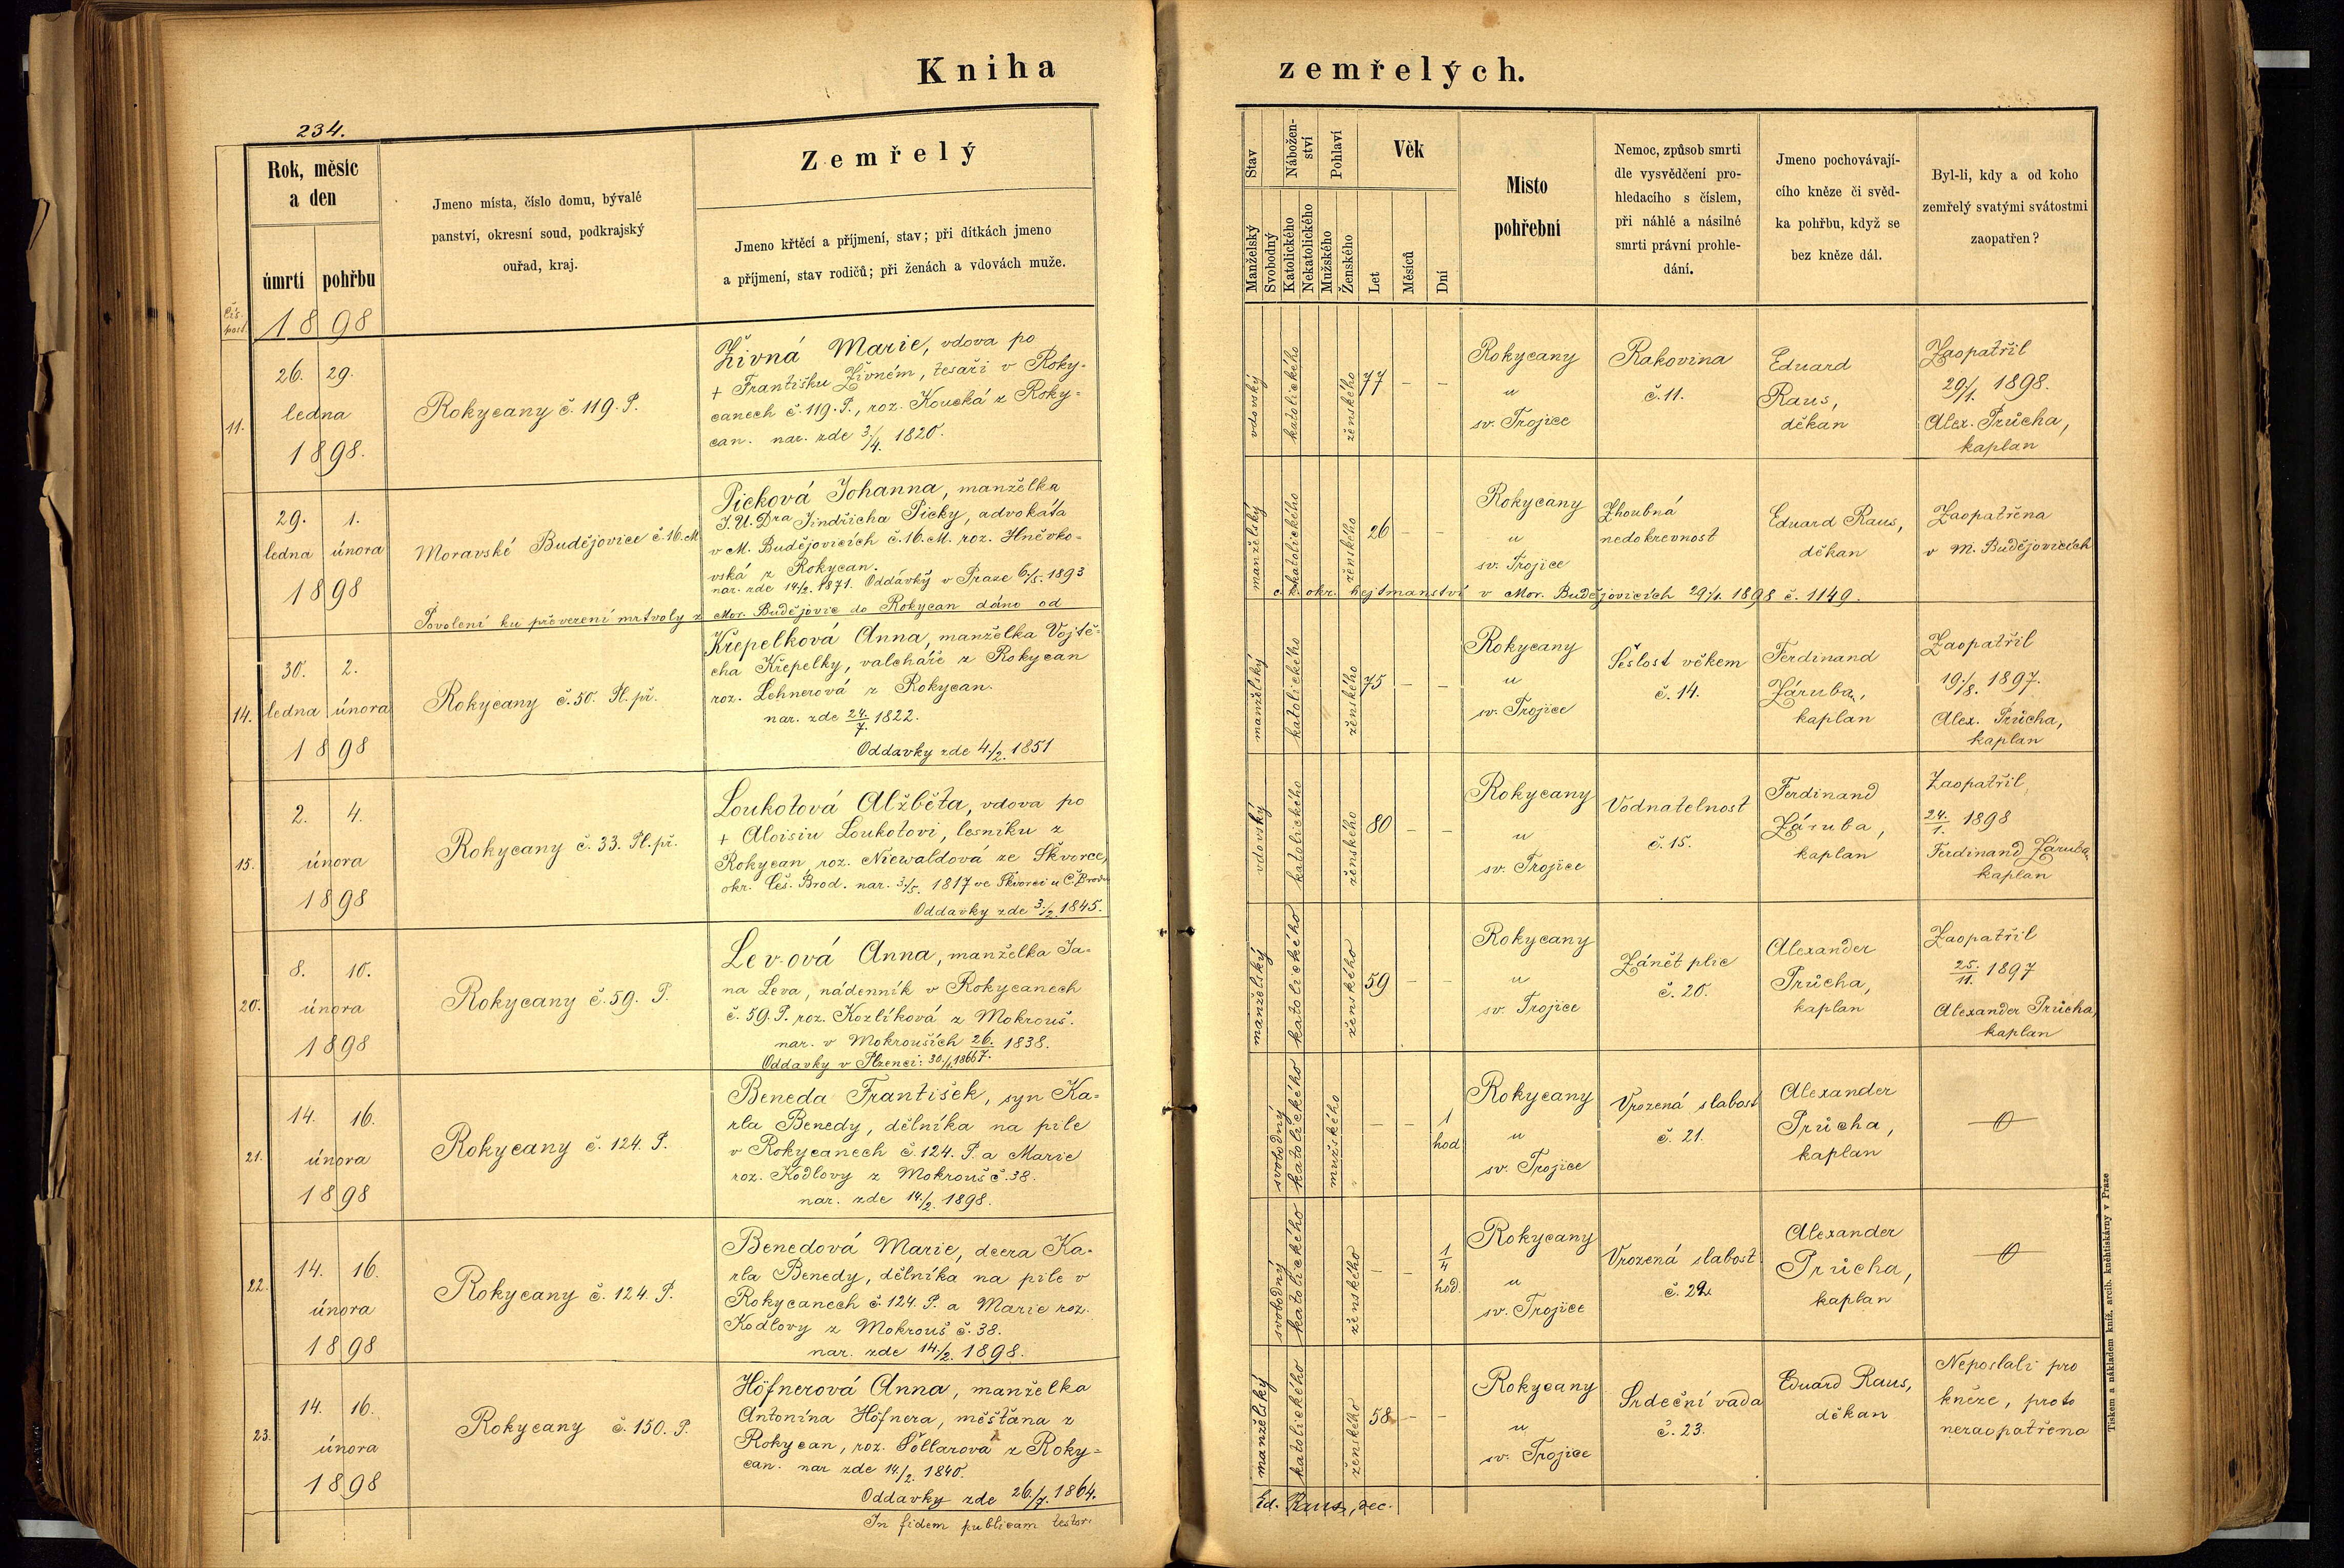 Kniha zemřelých.
234.
Rok, měsíc
a den
úmrtí pohřbu
Jmeno místa, číslo domu, bývalé
panství, okresní soud, podkrajský
ouřad, kraj.
Zemřelý
Jmeno křtěcí a příjmení, stav; při dítkách jmeno
a příjmení, stav rodičů; při ženách a vdovách muže.
Stav
Manželský
Svobodný
Nábožen-
ství
Katolického
Nekatolického
Pohlaví
Mužského
Ženského
Věk
Let
Měsíců
Dní
Místo
pohřební
Nemoc, způsob smrti
dle vysvědčení pro-
hledacího s číslem,
při náhlé a násilné
smrti právní prohle-
dání.
Jmeno pochovávají-
cího kněze či svěd-
ka pohřbu, když se
bez kněze dál.
Byl-li, kdy a od koho
zemřelý svatými svátostmi
zaopatřen?
Čís.
post.
1898
11.
26. 29.
ledna
1898.
Rokycany č. 119. P.
Živná Marie, vdova po
+ Františku Živném, tesaři v Roky-
canech č. 119. P., roz. Koucká z Roky-
can. nar. zde 3./4. 1820.
vdovský
katolického
ženského
77 – –
Rokycany
u
sv. Trojice
Rakovina
č. 11.
Eduard
Raus,
děkan
Zaopatřil
20/1. 1898.
Alex. Průcha,
kaplan
29. 1.
ledna února
1898
Moravské Budějovice č. 16. M
Picková Johanna, manželka
J. U. Dra Jindřicha Picky, advokáta
v M. Budějovicích č. 16. M. roz. Hněvko-
vská z Rokycan.
nar. zde 14/2. 1871. Oddávky v Praze 6/5. 1893
manželský
katolického
ženského
26 – –
Rokycany
u
sv. Trojice
Zhoubná
nedokrevnost
Eduard Raus,
děkan
Zaopatřena
v M. Budějovicích
Povolení ku převezení mrtvoly z Mor. Budějovic do Rokycan dáno od c. k. okr. hejtmanství v Mor. Budějovicích 29/1. 1898 č. 1149.
14.
30. 2.
ledna února
1898
Rokycany č. 50. Pl. př.
Křepelková Anna, manželka Vojtě-
cha Křepelky, valcháře z Rokycan
roz. Lehnerová z Rokycan.
nar. zde 24./7. 1822.
Oddavky zde 4./2. 1851
manželský
katolického
ženského
75 – –
Rokycany
u
sv. Trojice
Sešlost věkem
č. 14.
Ferdinand
Záruba,
kaplan
Zaopatřil
19./8. 1897.
Alex. Průcha,
kaplan
15.
2. 4.
února
1898
Rokycany č. 33. Pl. př.
Loukotová Alžběta, vdova po
+ Aloisiu Loukotovi, lesníku z
Rokycan, roz. Niewaldová ze Škvorce,
okr. Čes. Brod. nar. 3./5. 1817 ve Škvorci u Č. Brodu
Oddavky zde 3./2. 1845.
vdovský
katolického
ženského
80 – –
Rokycany
u
sv. Trojice
Vodnatelnost
č. 15.
Ferdinand
Záruba,
kaplan
Zaopatřil
24./1. 1898
Ferdinand Záruba,
kaplan
20.
8. 10.
února
1898
Rokycany č. 59. P.
Levová Anna, manželka Ja-
na Leva, nádenník v Rokycanech
č. 59. P. roz. Kozlíková z Mokrouš.
nar. v Mokrouších 26./7. 1838.
Oddavky v Plzenci:
manželský
katolického
ženského
59 – –
Rokycany
u
sv. Trojice
Zánět plic
č. 20.
Alexander
Průcha,
kaplan
Zaopatřil
25./11. 1897
Alexander Průcha,
kaplan
21.
14. 16.
února
1898
Rokycany č. 124. P.
Beneda František, syn Ka-
rla Benedy, dělníka na pile
v Rokycanech č. 124. P. a Marie
roz. Kodlovy z Mokrouš č. 38.
nar. zde 14./2. 1898.
svobodný
katolického
mužského
– – 1
hod
Rokycany
u
sv. Trojice
Vrozená slabost
č. 21.
Alexander
Průcha,
kaplan
22.
14. 16.
února
1898
Rokycany č. 124. P.
Benedová Marie, dcera Ka-
rla Benedy, dělníka na pile v
Rokycanech č. 124. P. a Marie roz.
Kodlovy z Mokrouš č. 38.
nar. zde 14./2. 1898.
svobodný
katolického
ženského
– – 1/4
hod.
Rokycany
u
sv. Trojice
Vrozená slabost
č. 22
Alexander
Průcha,
kaplan
23.
14. 16.
února
1898
Rokycany č. 150. P.
Höfnerová Anna, manželka
Antonína Höfnera, měšťana z
Rokycan, roz. Šöllarová z Roky-
can. nar zde 14./2. 1840.
Oddavky zde 26./7. 1864.
manželský
katolického
ženského
58 – –
Rokycany
u
sv. Trojice
Srdeční vada
č. 23.
Eduard Raus,
děkan
Neposlali pro
kněze, proto
nezaopatřena
In fidem publicam testor: Ed. Raus, dec.
Tiskem a nákladem kníž. arcib. kněhtiskárny v Praze